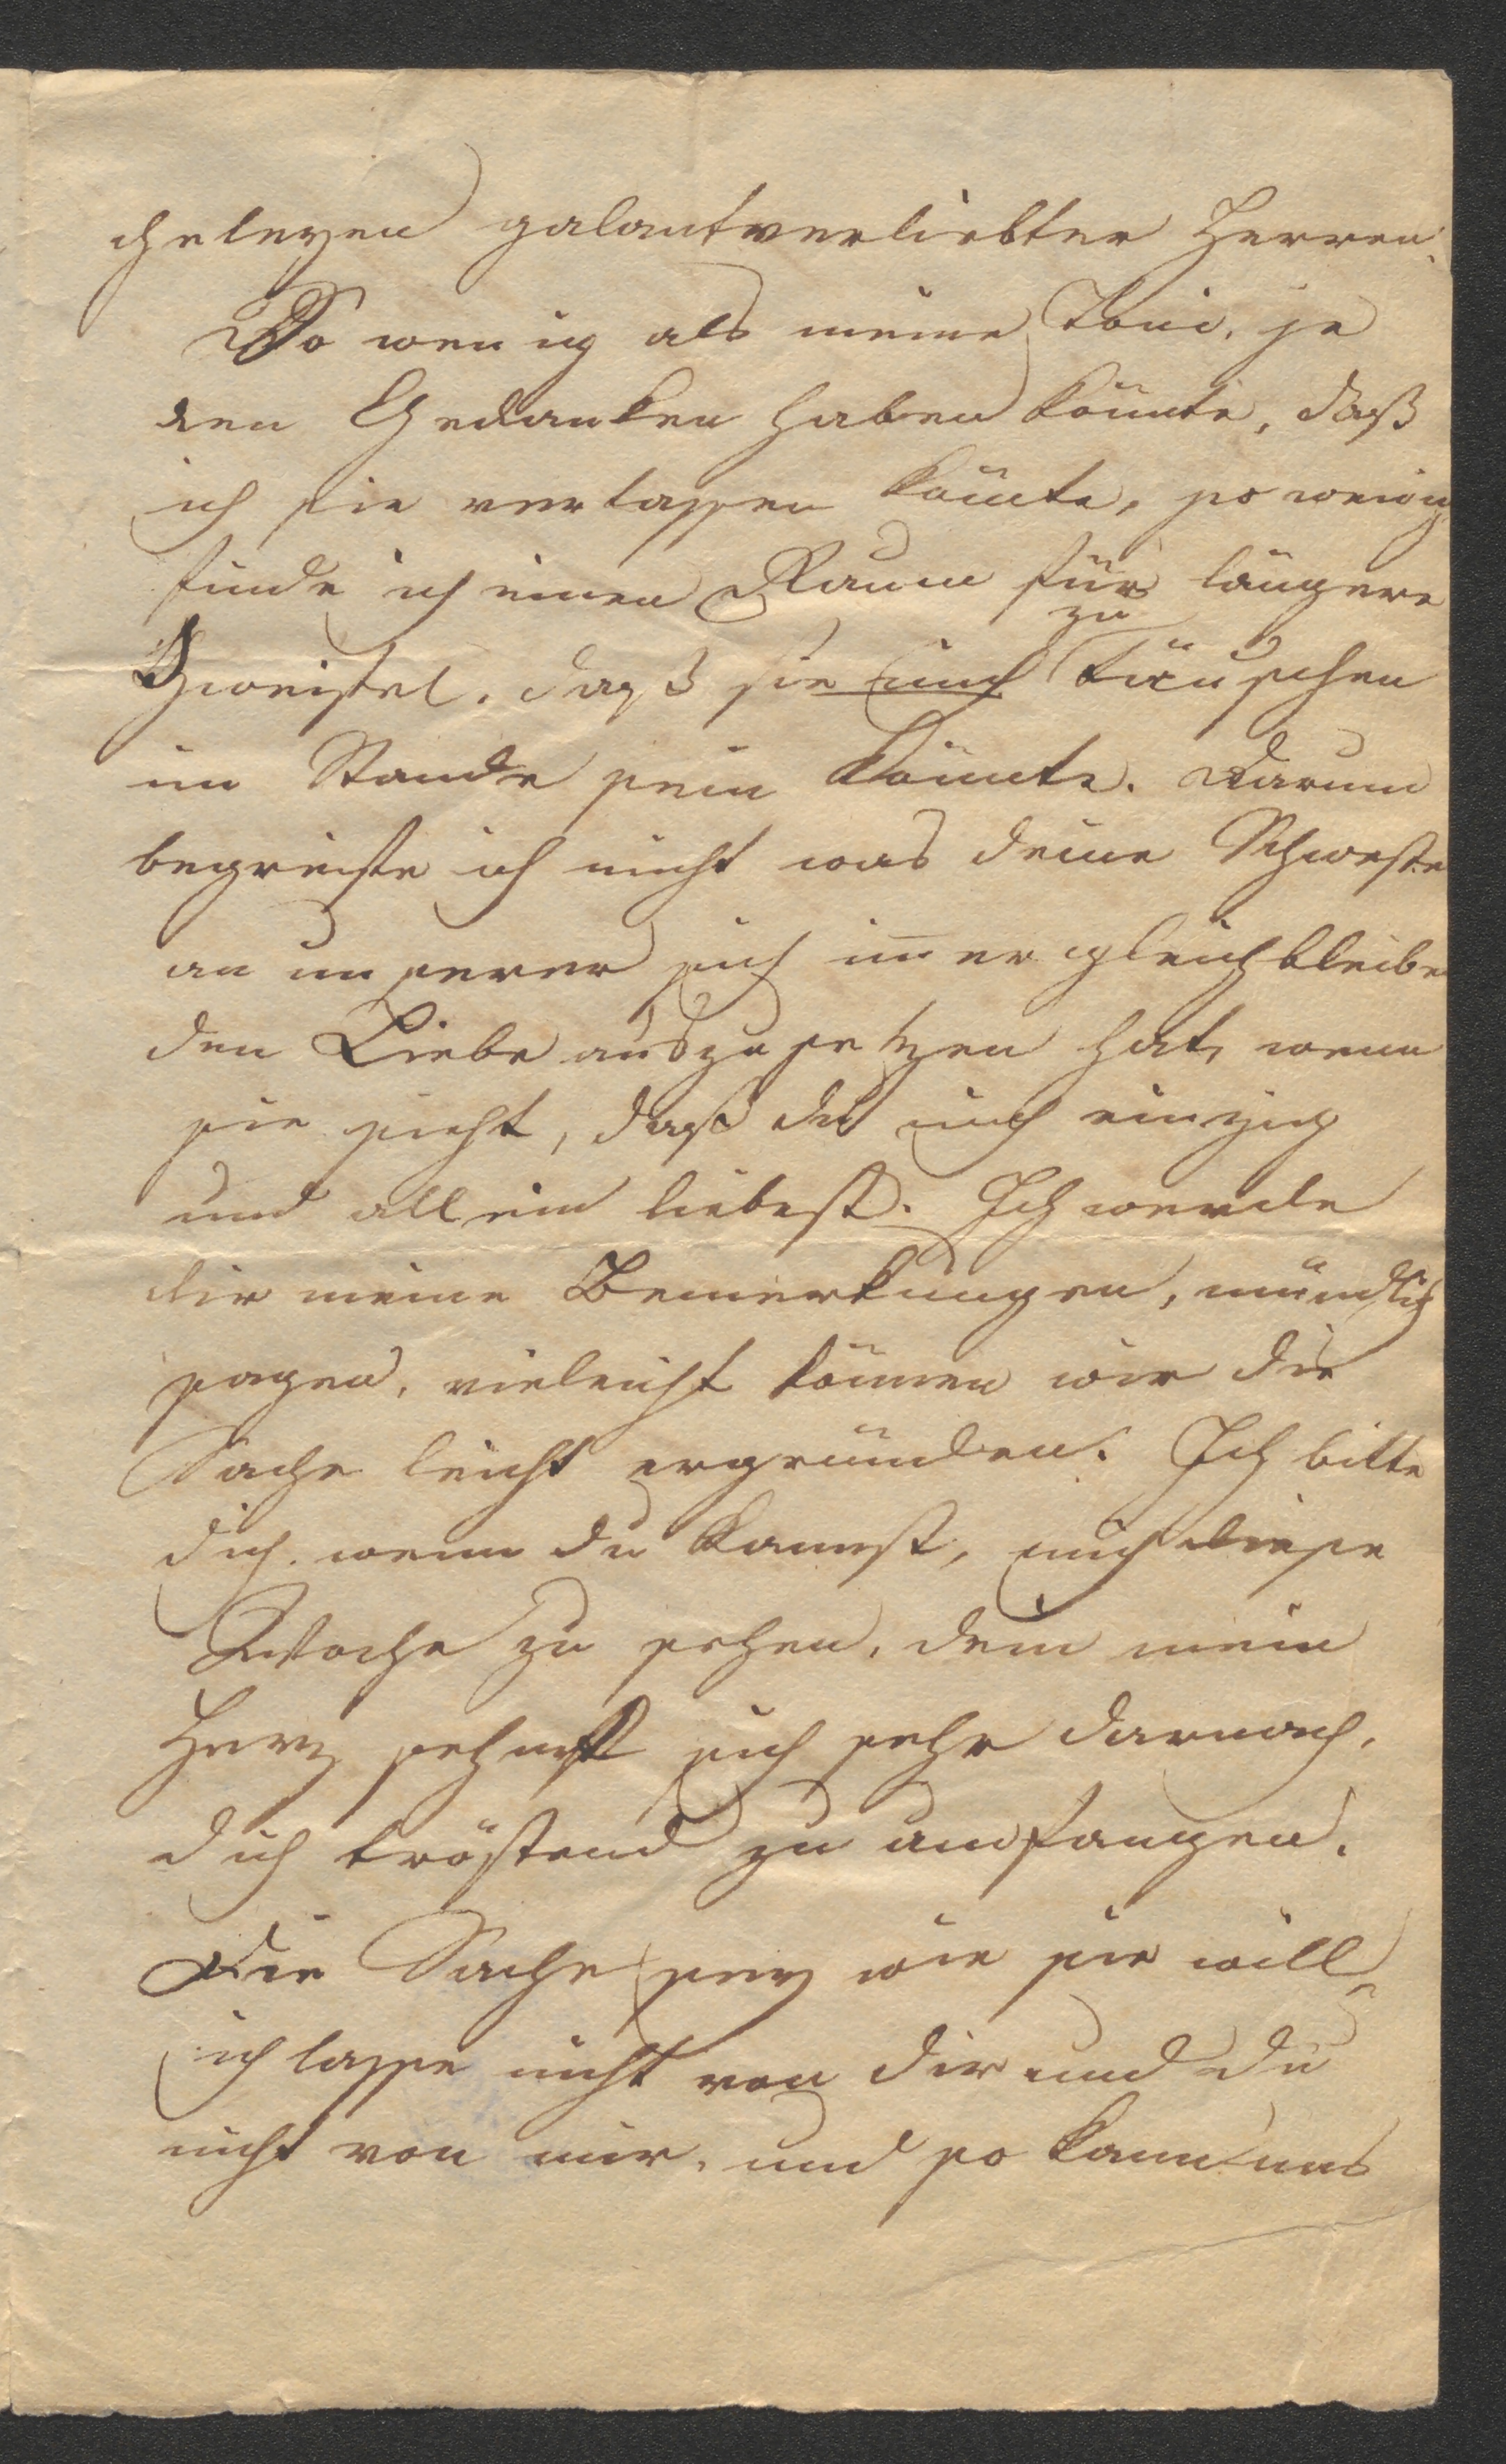 cheleyen galantverliebter Herren.
So wenig als meine Toni, je
den Gedanken haben könnte, daß
ich sie verlassen könnte, so wenig
finde ich einen Raum für längere
Zweifel, daß sie mich zu täuschen
im Stande sein könnte. Darum
begreiffe ich nicht was deine Schwester
an unserer sich im̅er gleichbleiben
den Liebe auszusetzen hat, wenn
sie sieht, daß du mich einzig
und allein liebest. Ich werde
dir meine Bemerkungen, mündlich
sagen, vieleicht können wir die
Sache leicht ergründen. Ich bitte
dich, wenn du kannst, mich diese
Woche zu sehen, denn mein
Herz sehnt sich sehr darnach,
dich tröstend zu umfangen.
Die Sache sey wie sie will,
ich lasse nicht von dir und du
nicht von mir, und so kann uns